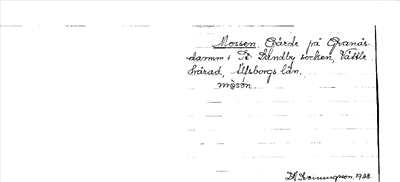 Mossen, Gärde på Granäs-
damm i St. Lundby socken, Vättle
härad, Älfsborgs län.
måsön.
1928